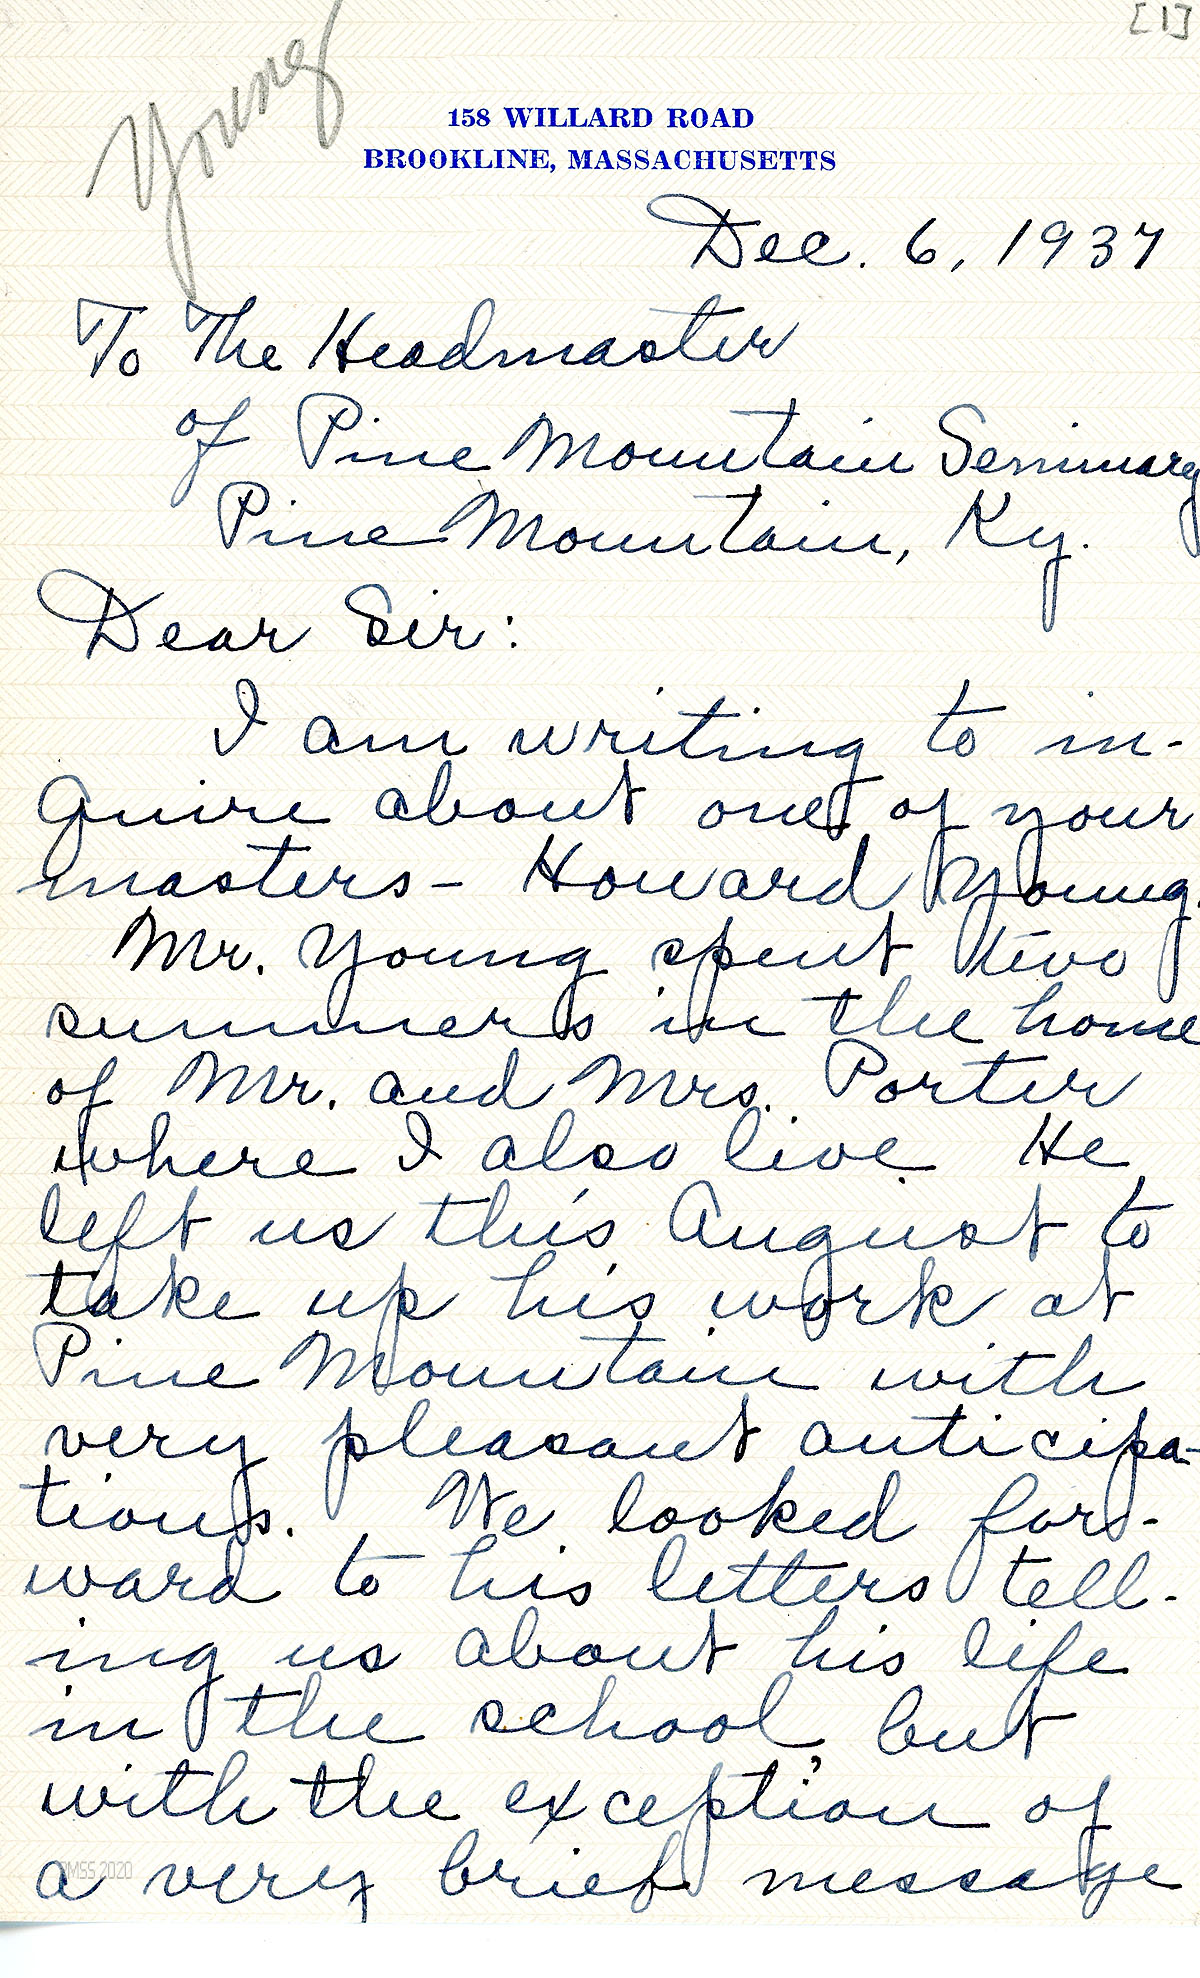 [1]
Young
158 WILLARD ROAD
BROOKLINE, MASSACHUSETTS
Dec. 6, 1937
To The Headmaster
of Pine Mountain Seminary
Pine Mountain, Ky.
Dear Sir:
I am writing to in-
quire about one of your
masters - Howard Young.
Mr. Young spent two
summers in the home
of Mr. and Mrs. Porter
where I also live. He
left us this August to
take up his work at
Pine Mountain with
very pleasant anticipa-
tions. We looked for-
ward to his letters tell-
ing us about his life
in the school, but
with the exception of
a very brief message
PMSS 2020